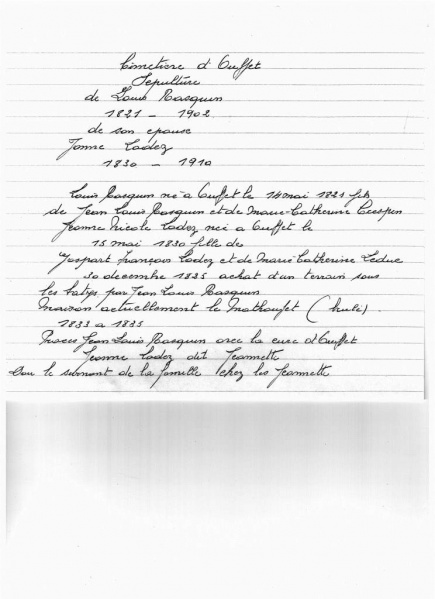 Cimetiere d Ouffet
Sepulture
de Louis Rasquin
1821 - 1902
de son epouse
Jeanne Ladez
1830 - 1910
Louis Rasquin né a Ouffet le 14 mai 1821 fils
de Jean Louis Rasquin et de Marie-Catherine Crespin
Jeanne Nicole Ladez née a Ouffet le
15 mai 1830 fille de
Gaspart françois Ladez et de Marie Catherine Leduc
30 decembre 1835 achat d'un terrain sous
les hatys par Jean Louis Rasquin
Maison actuellement le (brulé).
1833 a 1835
Proces Jean Louis Rasquin avec la cure d'Ouffet
Jeanne Ladez dit Jeannette
D'ou le surnont de la famille chez les Jeannette